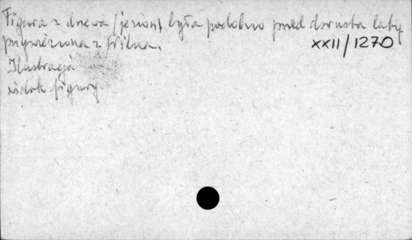 Figura z drzewa (jesion) była podobno przed dwustu laty
przywieziona z Wilna.
XXII/1270
Ilustracja
widok figury